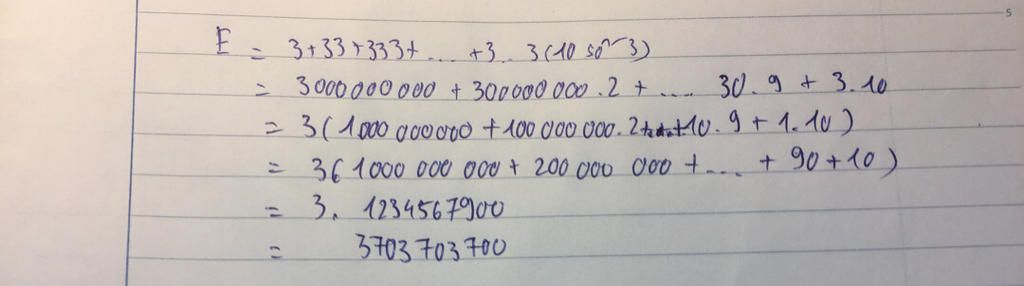 E = 3+33+333+ .... +3...3(10 số 3)
= 3000000000 + 300000000.2 + .... 30.9 + 3.10
= 3(1000 000000 +100 000 000.2+...+10.9 + 1.10)
= 3( 1000 000 000 + 200 000 000 + .... + 90+10)
= 3. 1234567900
= 3703703700